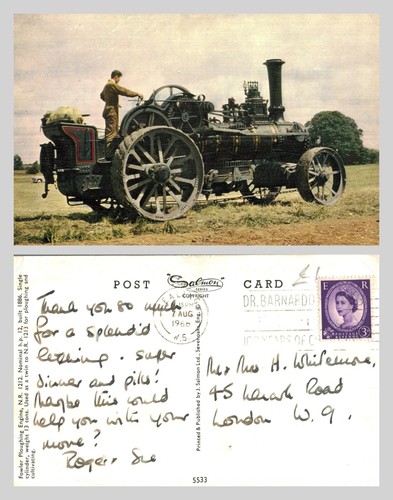 POST
Salmon
SERIES
COPYRIGHT
CARD
£
7 AUG
1966
DR. BARNARDO
E R
3D
Thank you so much
for a splendid
evening. Super
dinner and pils!
Maybe this could
help you with your
move?
Roger Sue
Mr Mrs H. Whitemore,
45 Lanark Road
London W. 9.
Fowler Ploughing Engine, N.R. 1212. Nominal h.p. 12, built 1886. Single
cylinder, weight 13 tons. Used as a twin to N.R. 1213 for ploughing and
cultivating.
Printed & Published by J. Salmon Ltd., Sevenoaks, Eng.
5533